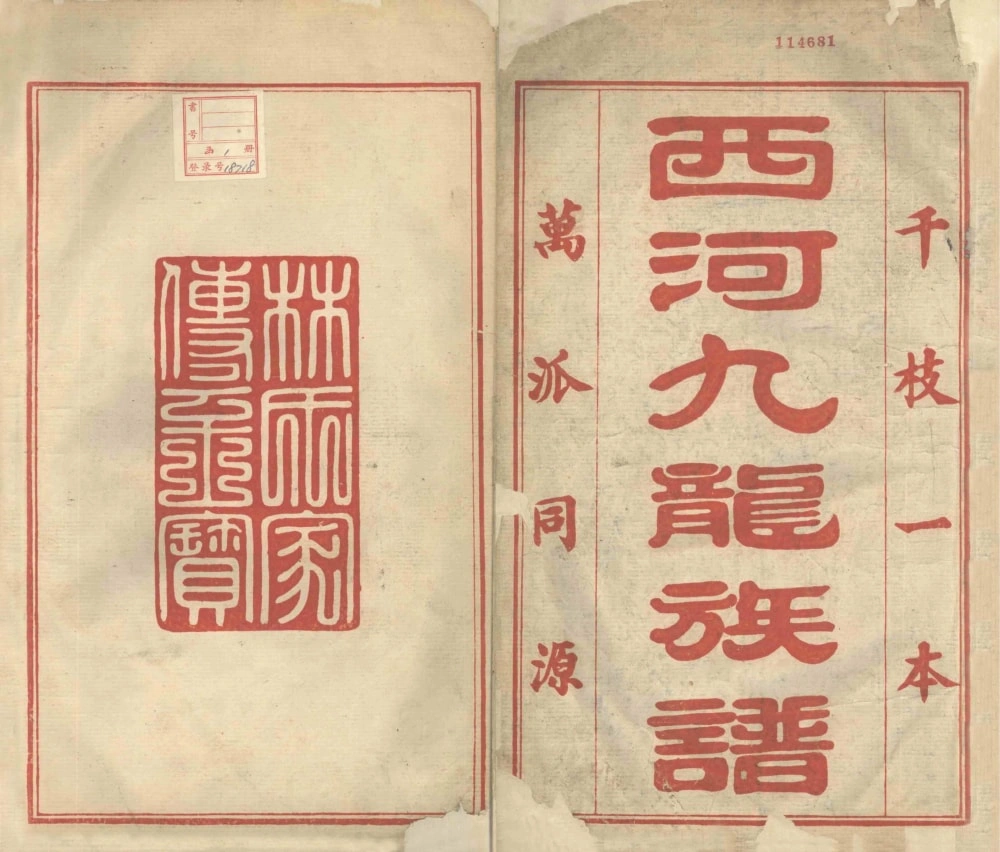 114681
千枝一本
西河九龍族譜
萬派同源
書号
函 1 册
登录号 18718
林 家
傳至寶